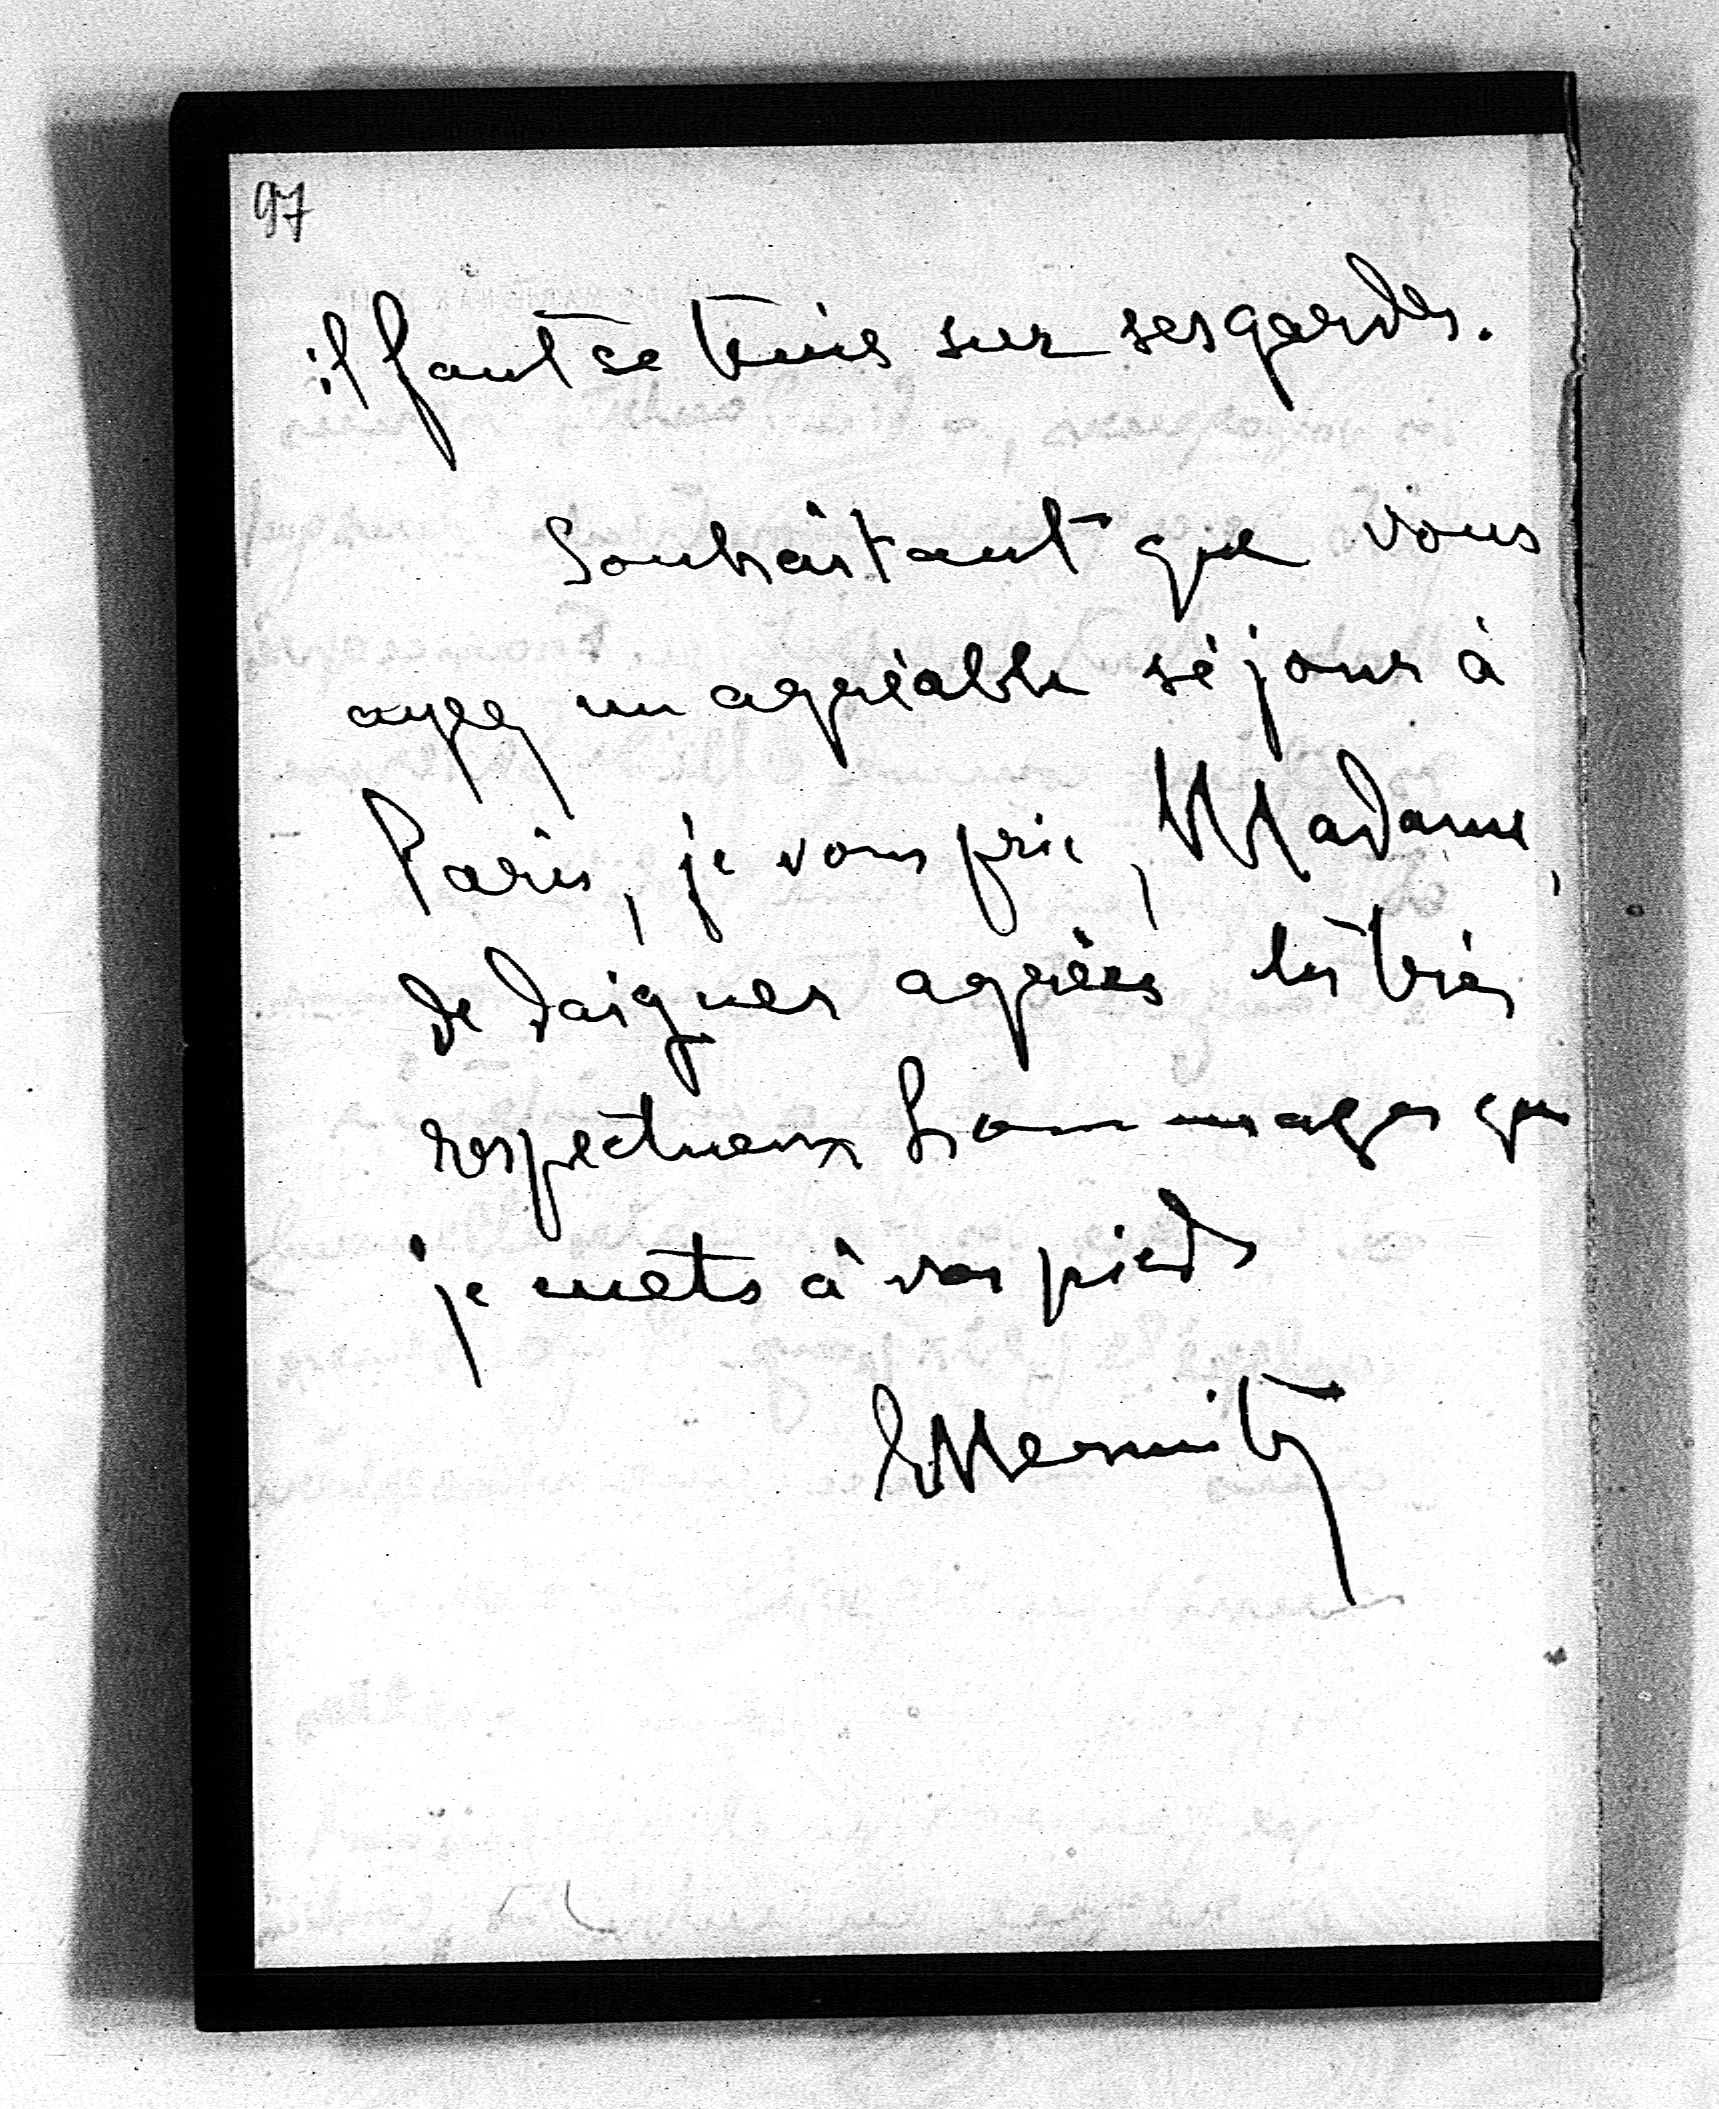 97
il faut se tenir sur ses gardes.
Souhaitant que vous
ayez un agréable séjour à
Paris, je vous prie, Madame,
de daigner agréer les très
respectueux hommages que
je mets à vos pieds